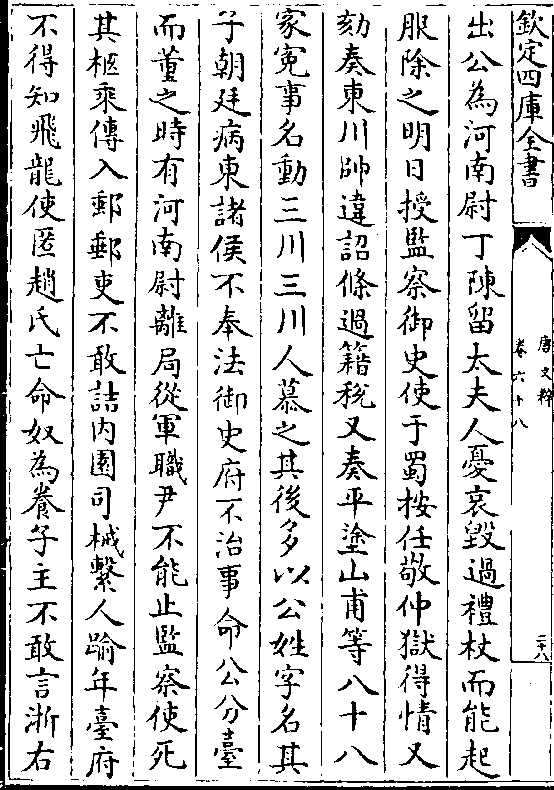 欽定四庫全書
唐文粹
卷六十八
二十八
出公為河南尉丁陳留太夫人憂哀毀過禮杖而能起
服除之明日授監察御史使于蜀按任敬仲獄得情又
劾奏東川帥違詔條過籍稅又奏平塗山甫等八十八
家寃事名動三川三川人慕之其後多以公姓字名其
子朝廷病東諸侯不奉法御史府不治事命公分臺
而董之時有河南尉離局從軍職尹不能止監察使死
其柩乘傳入郵郵吏不敢詰内園司械繫人踰年臺府
不得知飛龍使匿趙氏亡命奴為養子主不敢言浙右